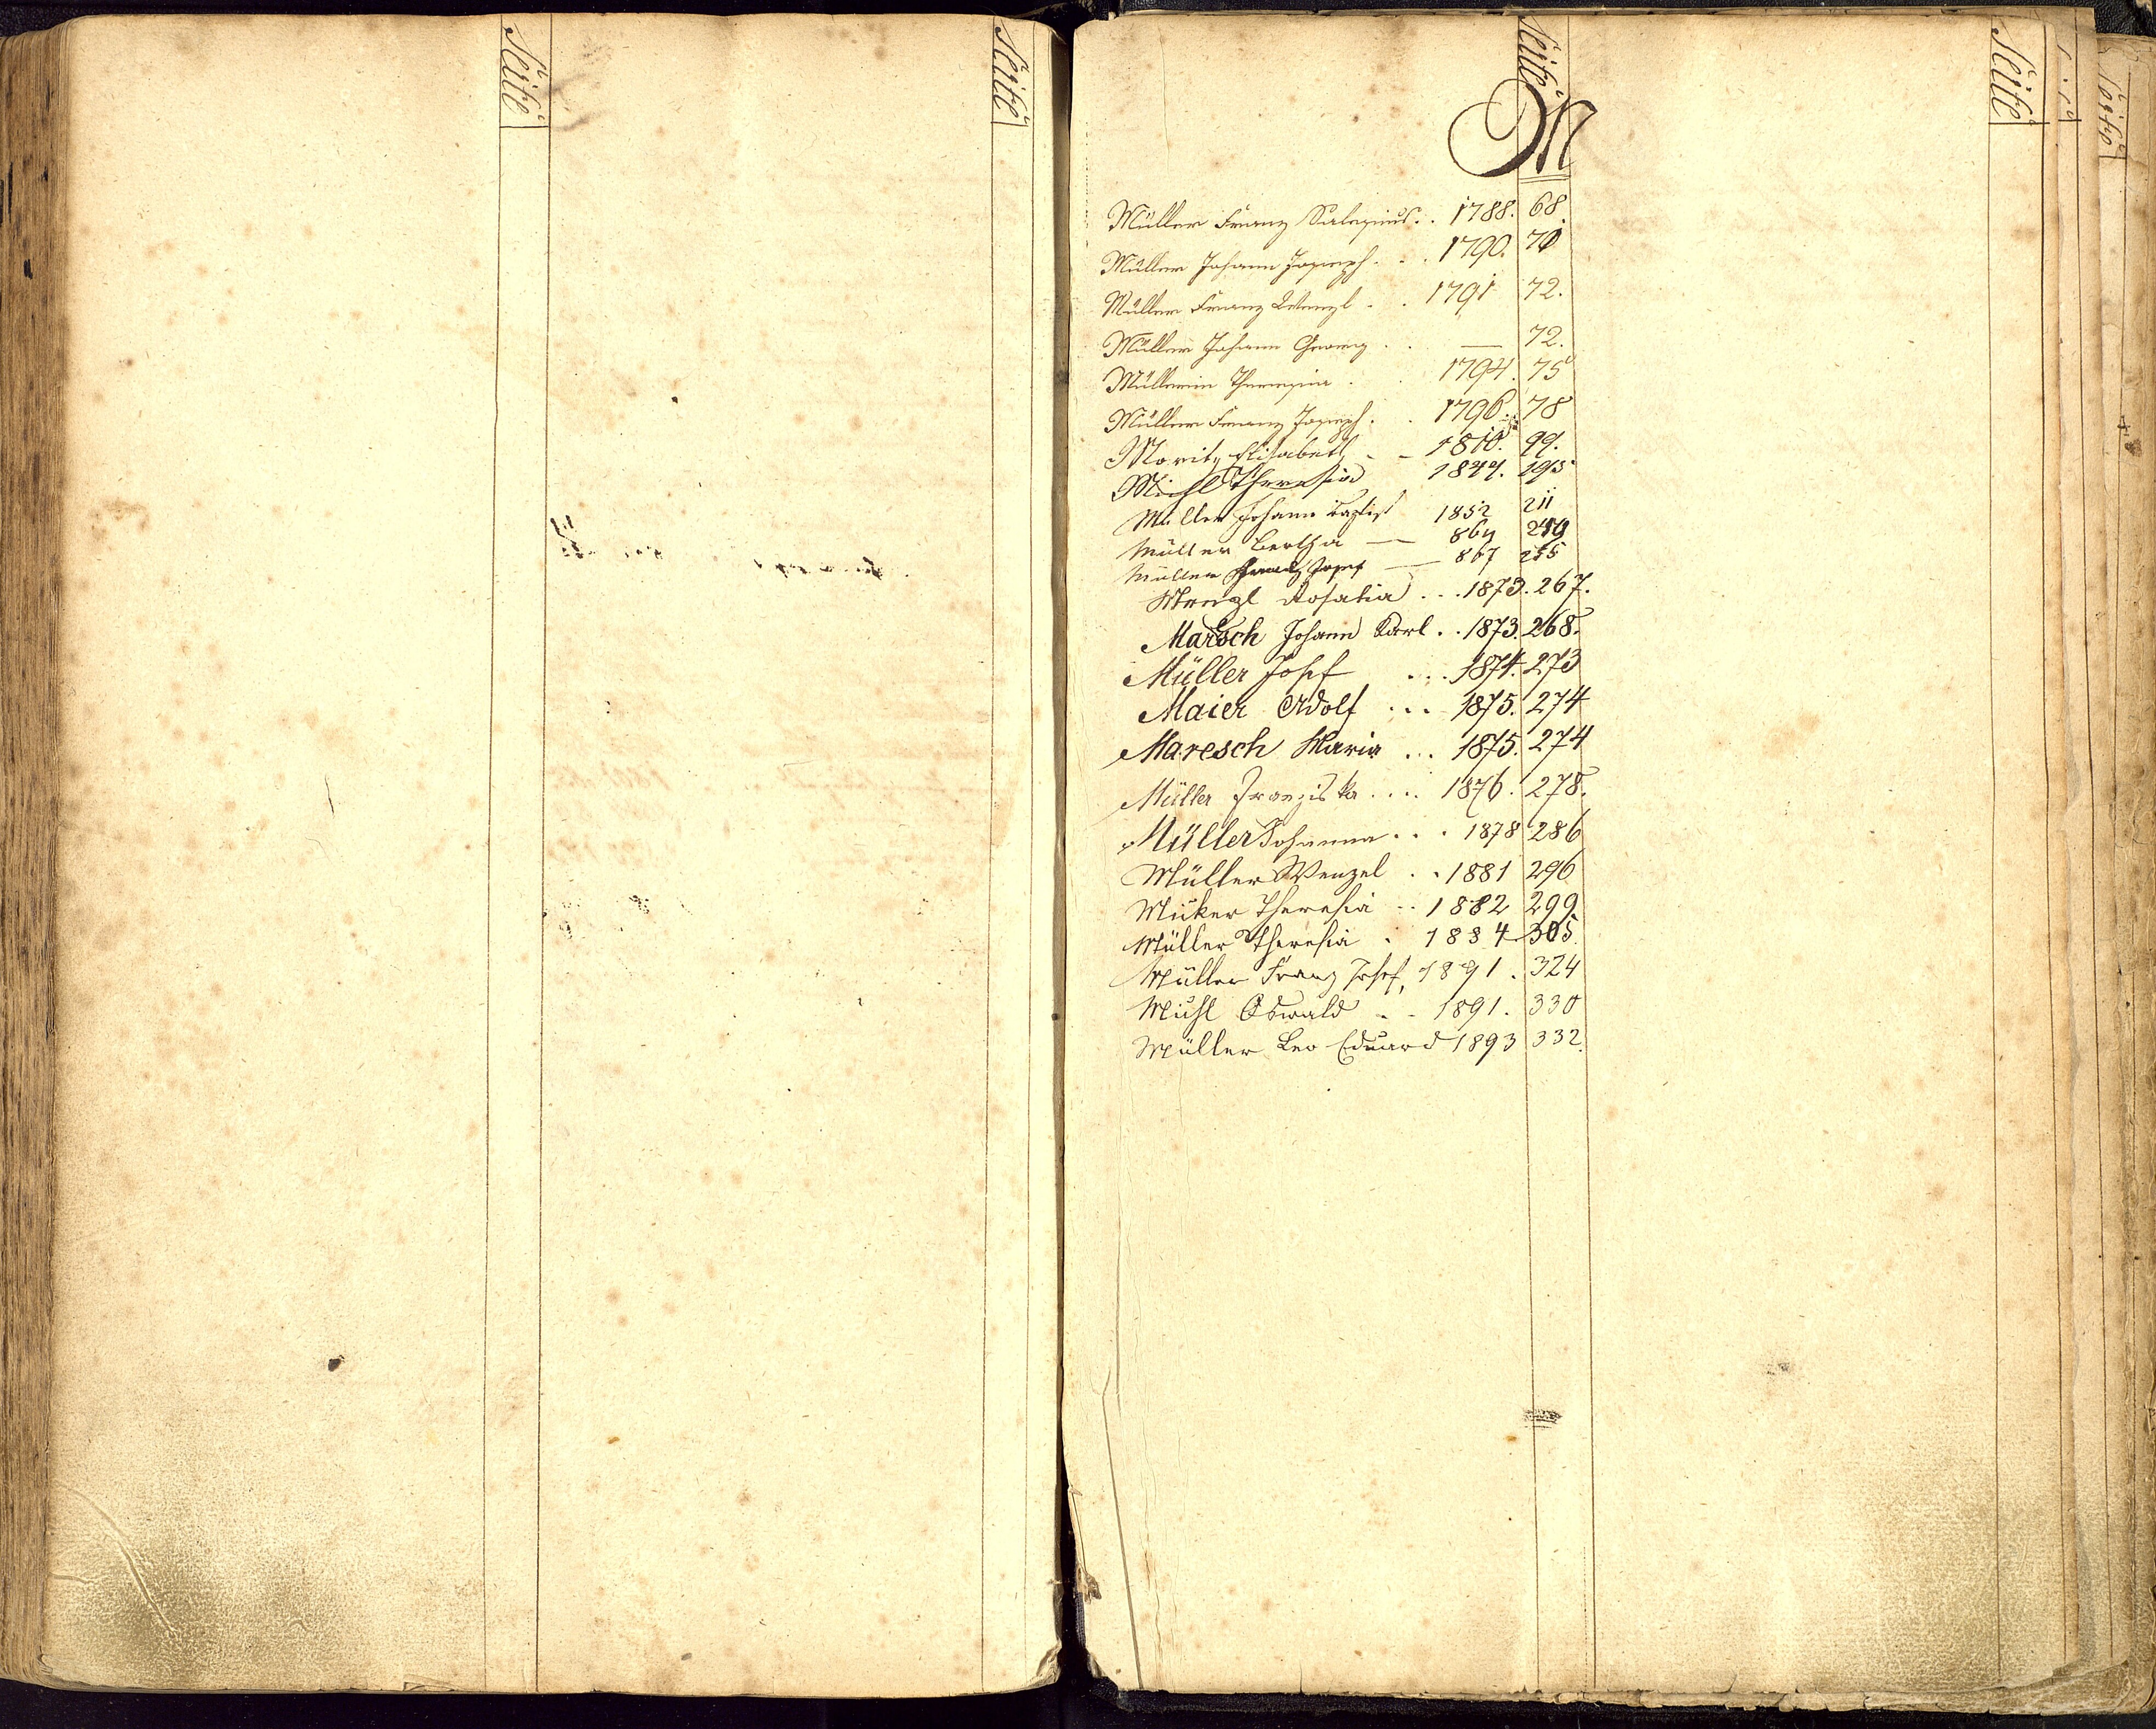 Seite
Seite
Seite
Seite
Seite
M
Müller Franz Salesius . . 1788. 68.
Müller Johann Joseph . . . 1790. 70
Müller Franz Wenzl . . 1791 72.
Müller Johann Georg . . — 72.
Müllerin Theresia . . 1794. 75
Müller Franz Joseph . . 1796. 78
Moritz Elisabeth - - 1810. 99.
Michl Theresia 1847. 195
Müller Johann Baptist 1852 211
Müller Bertha — 864 249
Müller Franz Josef — 867 255
Menzl Rosalia . . . 1873. 267.
Maresch Johann Karl . . 1873. 268.
Müller Josef . . . 1874. 273
Maier Adolf . . . 1875. 274
Maresch Maria . . . 1875. 274
Müller Franziska . . . . 1876. 278.
Müller Johanna . . . 1878 286
Müller Wenzel . . 1881 296
Theresia - - 1882 299.
Müller Theresia . 1884 305.
Müller Franz Josef, 1891. 324
Muhl Oswald - - 1891. 330
Müller Leo Eduard 1893 332.